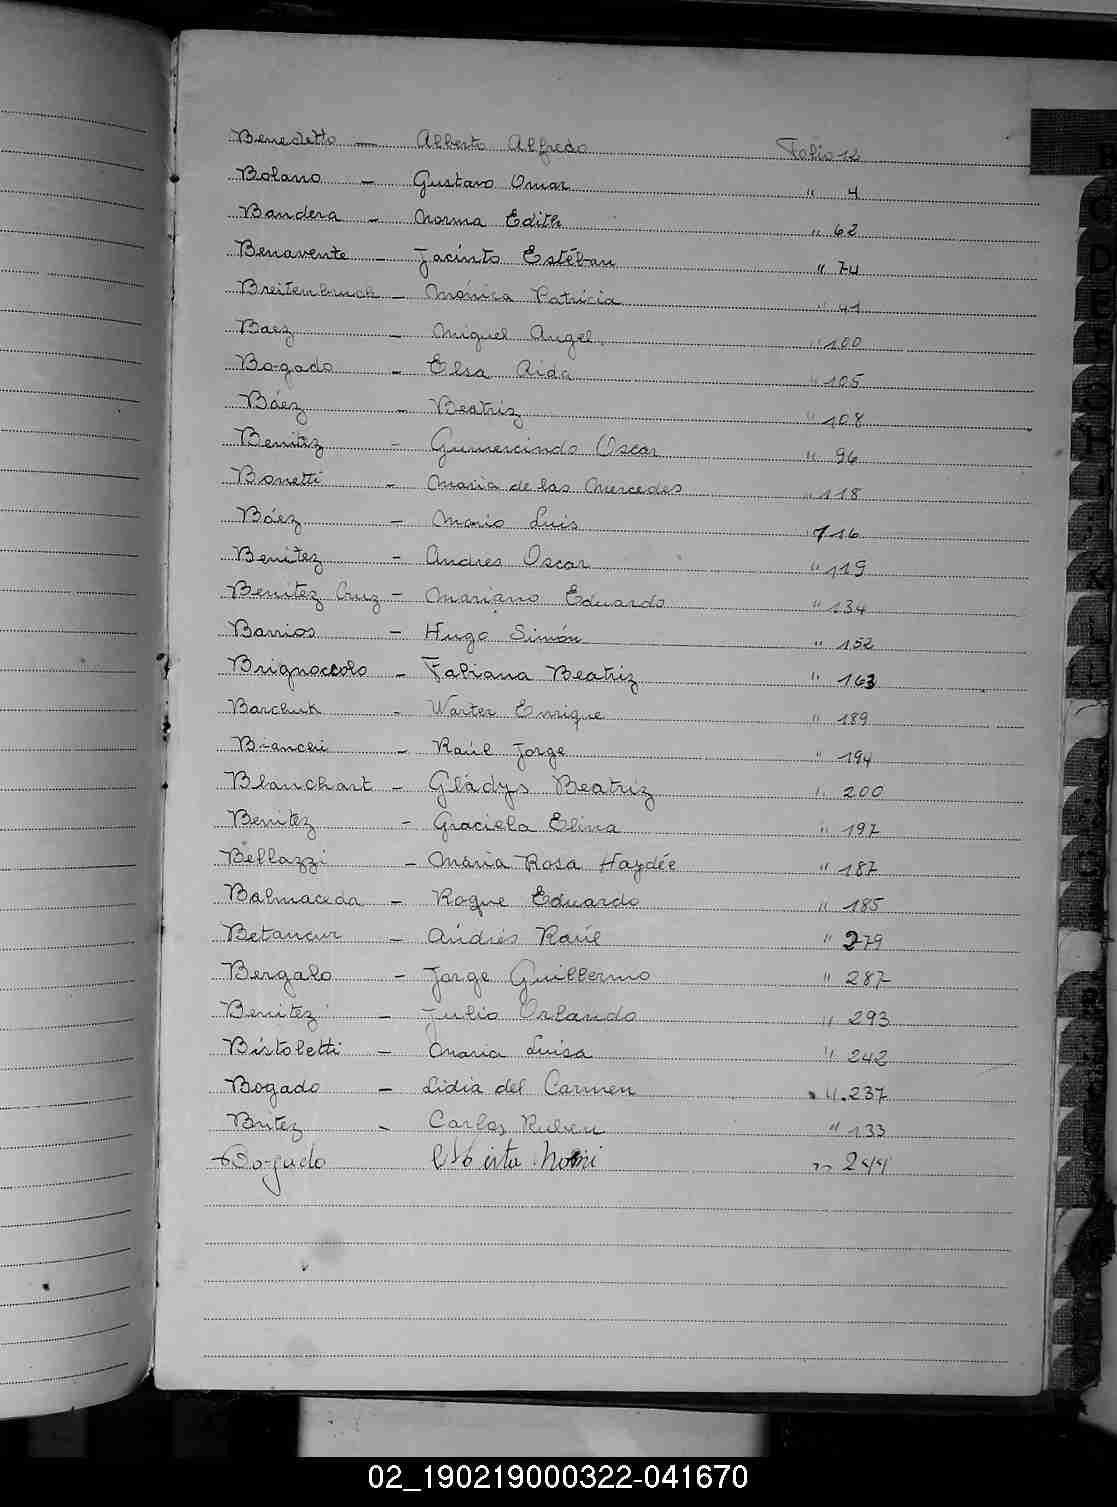 Benedetto — Alberto Alfredo Folio 12
Bolano - Gustavo Omar " 4
Bandera - Norma Edith " 62
Benavente - Jacinto Estéban " 74
Breitenbruch - Mónica Patricia " 41
Baez - Miguel Angel " 100
Bogado - Elsa Aida " 105
Báez - Beatriz " 108
Benitez - Gumercindo Oscar " 96
Bonetti - Maria de las Mercedes " 118
Báez - Mario Luis " 116
Benitez - Andres Oscar " 119
Benitez Cruz - Mariano Eduardo " 134
Barrios - Hugo Simón " 152
Brignoccolo - Fabiana Beatriz " 163
Barchuk - Walter Enrique " 189
Bianchi - Raúl Jorge " 194
Blanchart - Gládys Beatriz " 200
Benitez - Graciela Elina " 197
Bellazzi - Maria Rosa Haydée " 187
Balmaceda - Roque Eduardo " 185
Betancur - Andrés Raúl " 279
Bergalo - Jorge Guillermo " 287
Benitez - Julio Orlando " 293
Bistoletti - Maria Luisa " 242
Bogado - Lidia del Carmen " 237
Britez - Carlos Ruben " 133
Bogado " 244
02_190219000322-041670